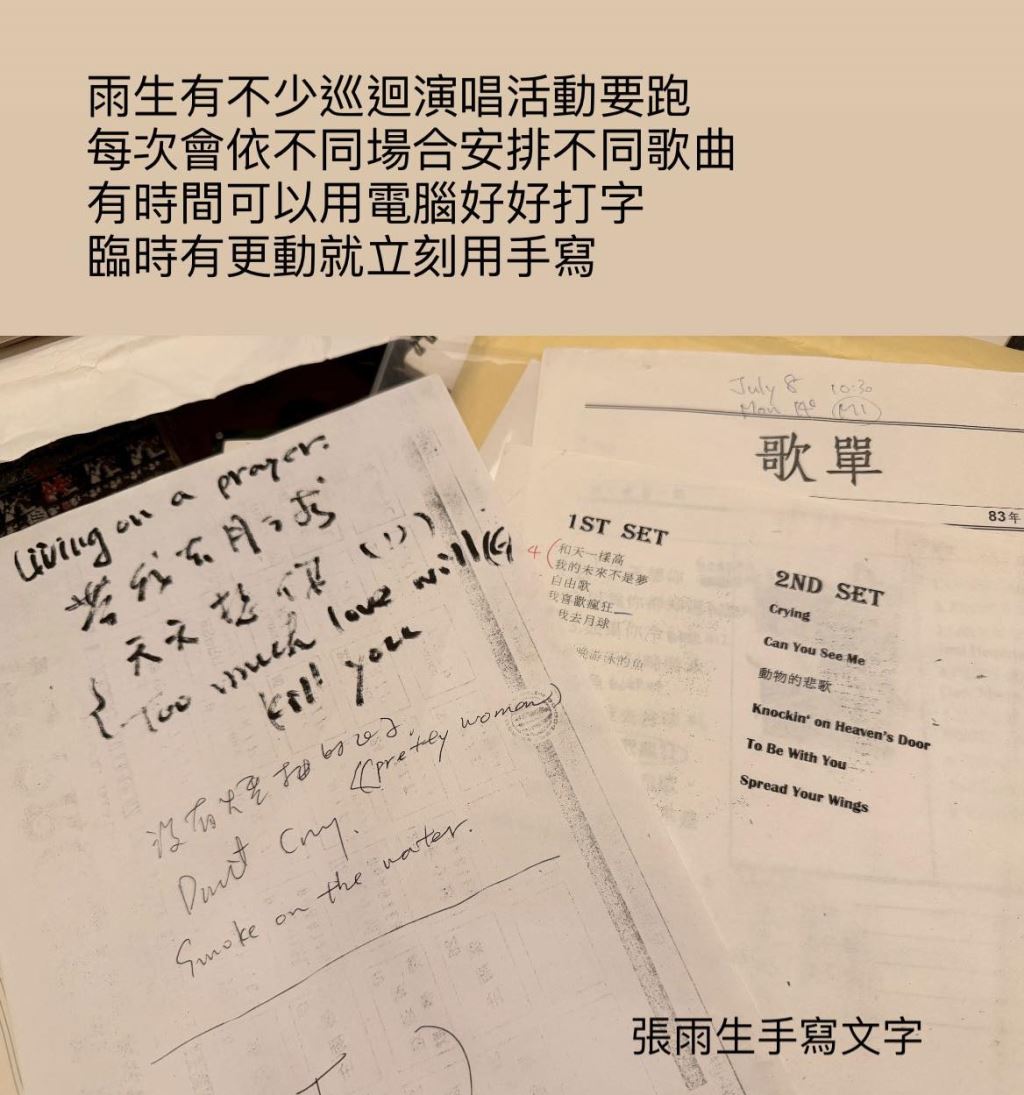 雨生有不少巡迴演唱活動要跑
每次會依不同場合安排不同歌曲
有時間可以用電腦好好打字
臨時有更動就立刻用手寫
Living on a prayer.
天天想你 (!!)
Too much love will
kill you
沒有
(pretty woman)
Don't Cry.
Smoke on the water.
July 8 10:30
Mon M1
歌單
83年
1ST SET
4
和天一樣高
我的未來不是夢
自由歌
我喜歡瘋狂
我去月球
晚游泳的魚
2ND SET
Crying
Can You See Me
動物的悲歌
Knockin' on Heaven's Door
To Be With You
Spread Your Wings
張雨生手寫文字